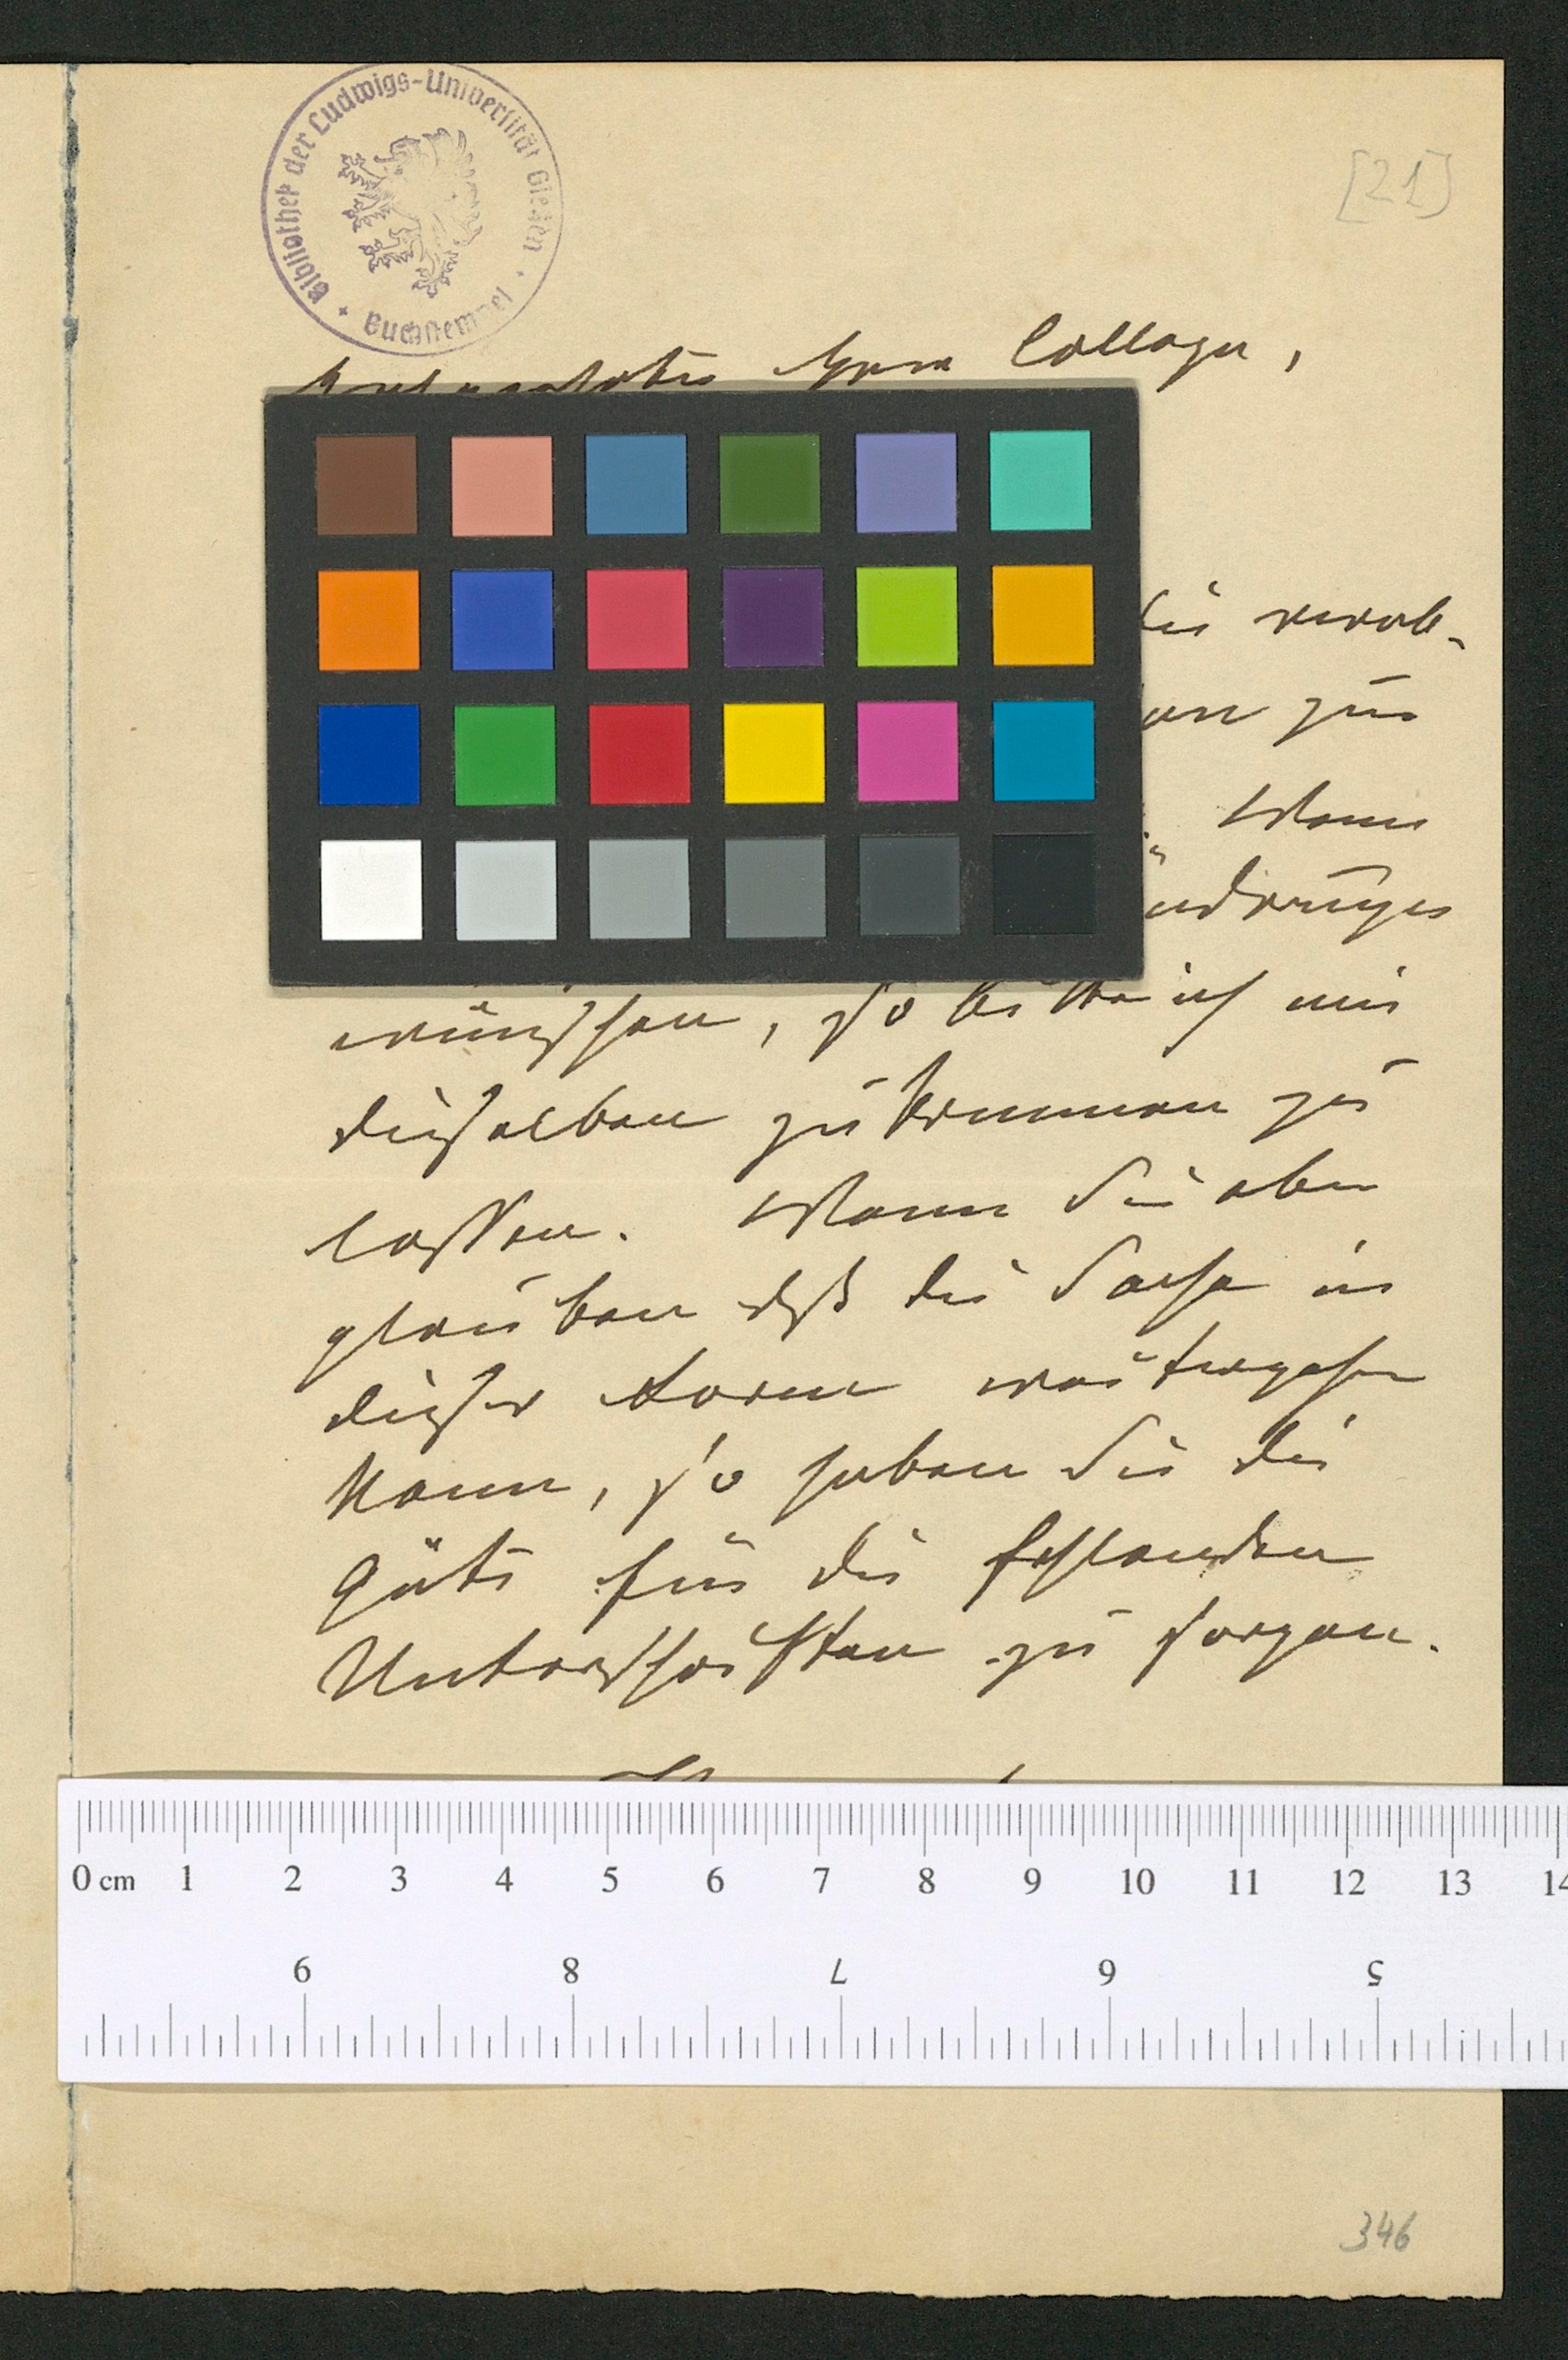 Bibliothek der Ludwigs-Universität Giessen · Buchstempel ·
[21]
Herr College,
die verab-
zur
Wenn
wünschen, so bitte ich mir
dieselben zukommen zu
lassen. Wenn Sie aber
glauben daß die Sache in
dieser Form weitergehen
kann, so haben Sie die
Güte für die fehlenden
Unterschriften zu sorgen.
0 cm 1 2 3 4 5 6 7 8 9 10 11 12 13 14
9 8 7 6 5
346